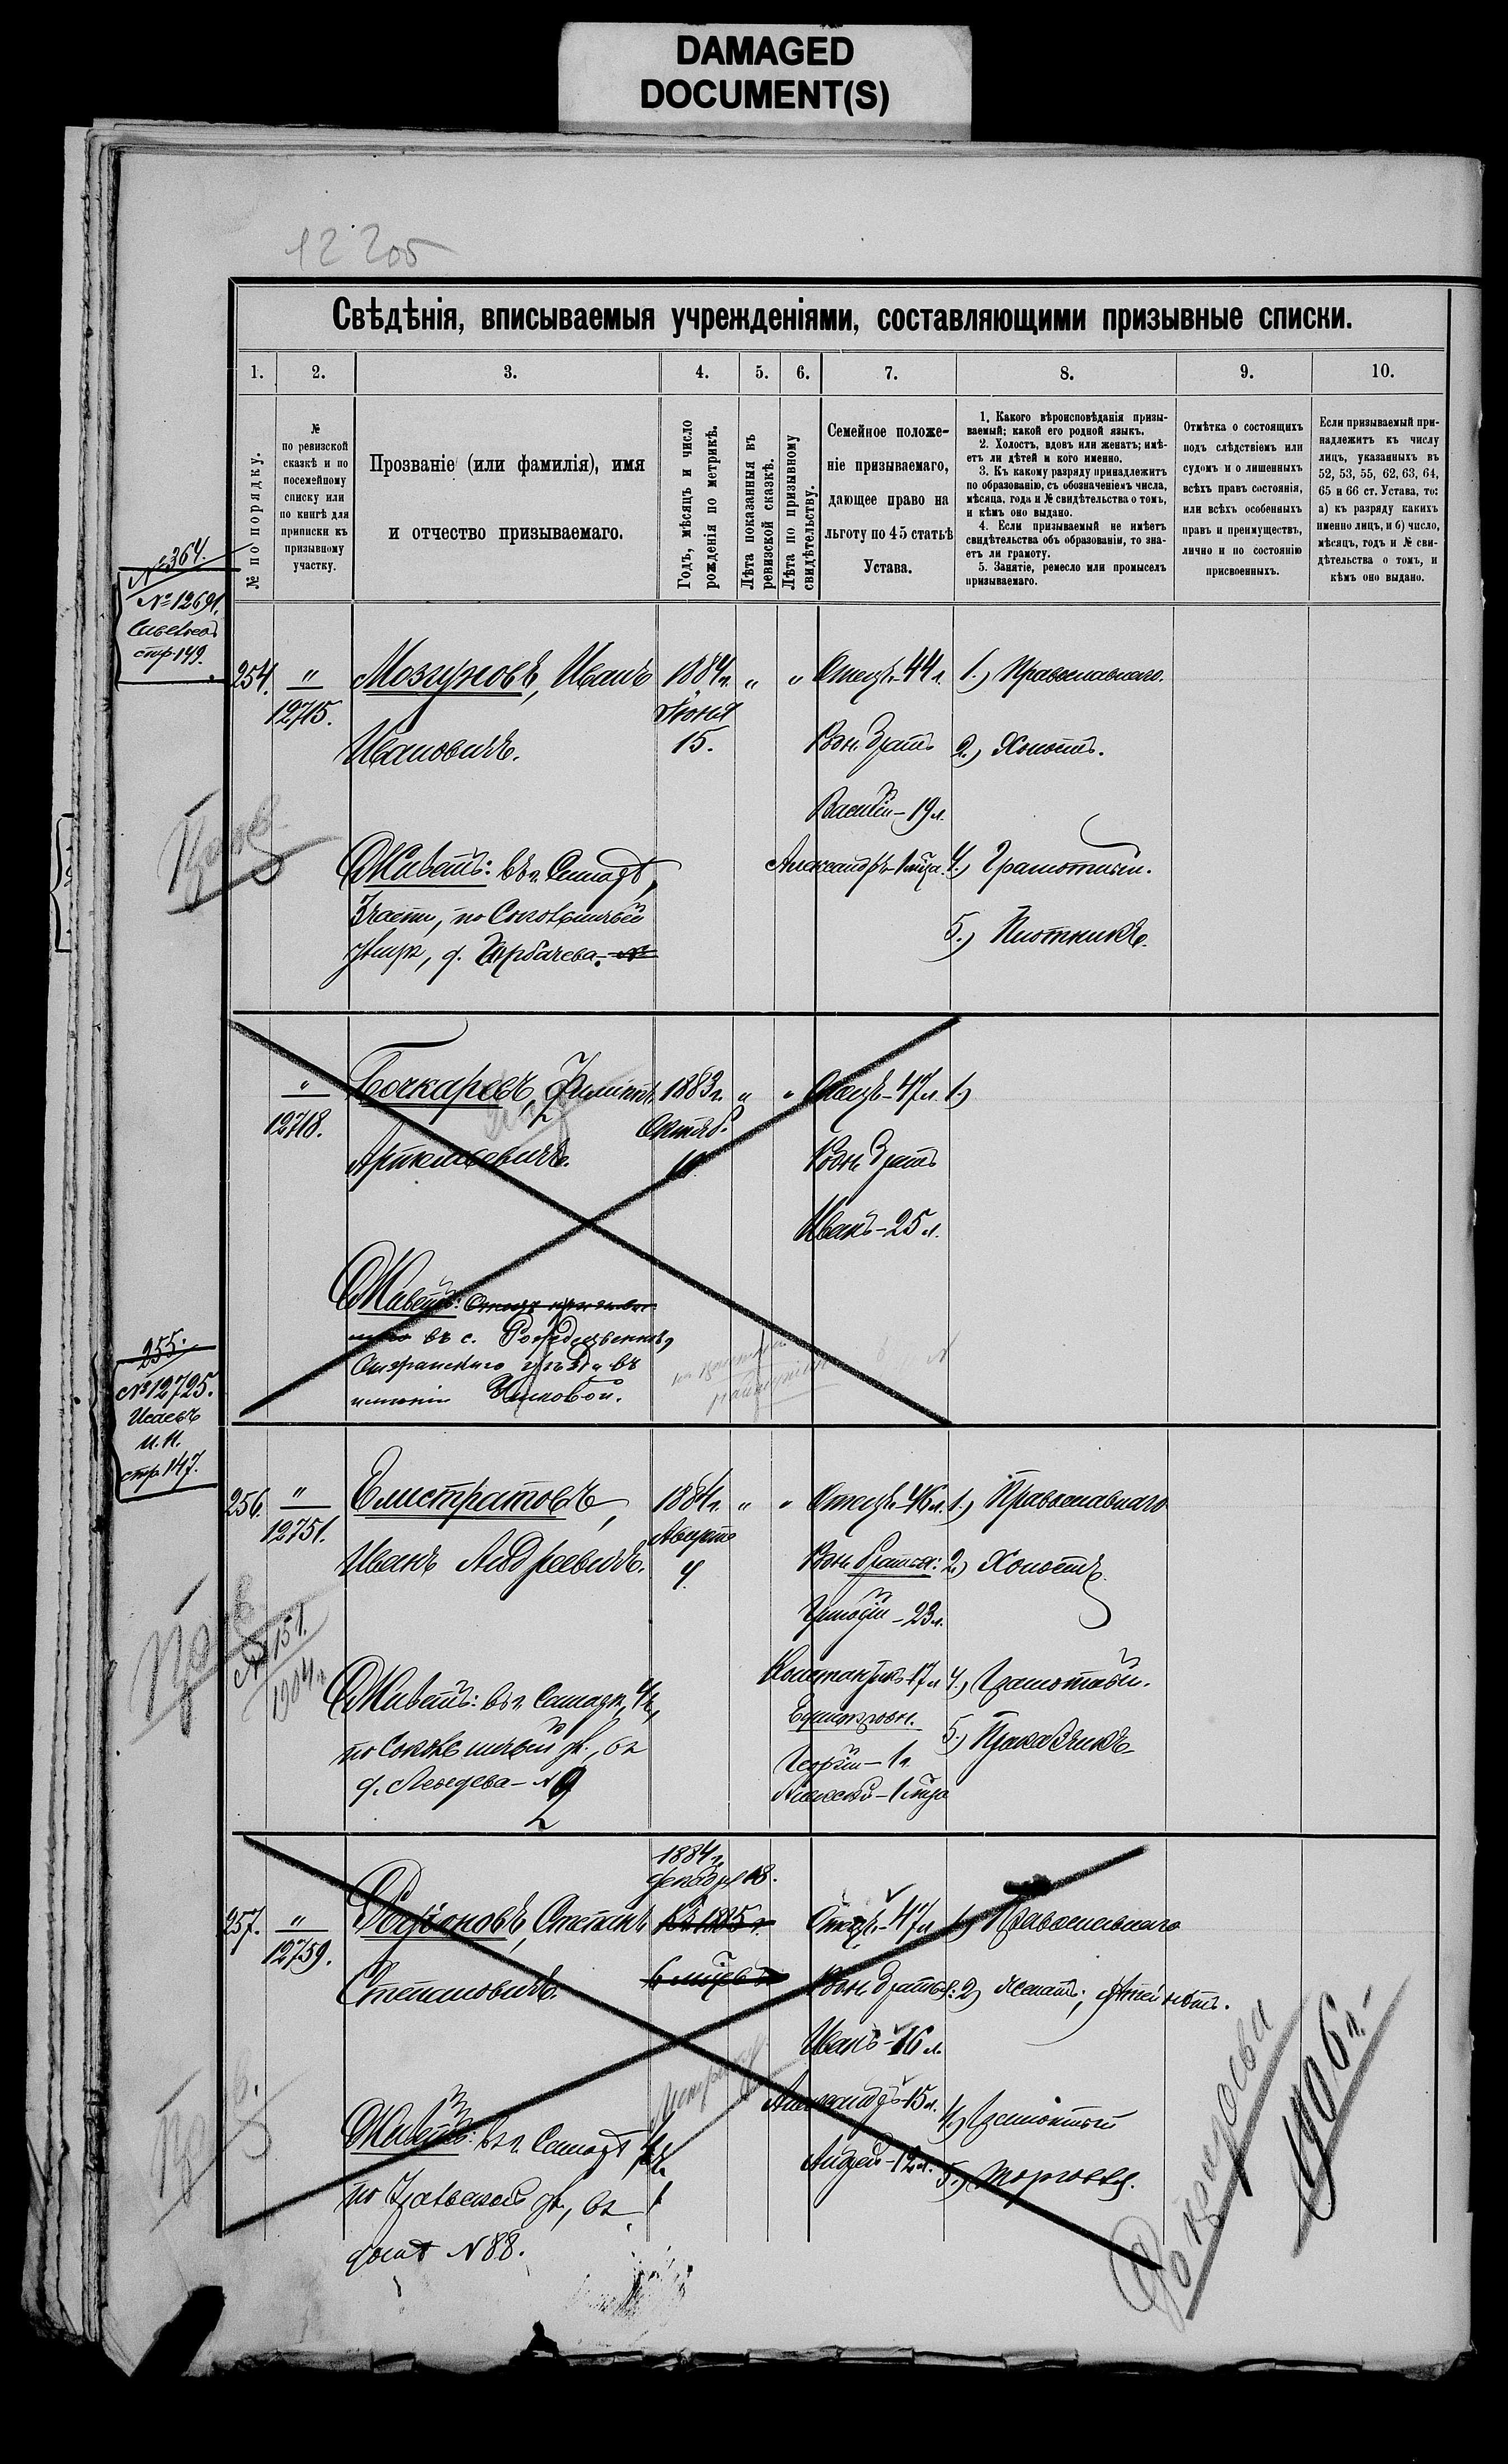 DAMAGED
DOCUMENT(S)
12205
Свѣдѣнія, вписываемыя учрежденіями, составляющими призывные списки.
1. 2. 3. 4. 5. 6. 7. 8. 9. 10.
№ по порядку.
№
по ревизской
сказкѣ и по
посемейному
списку или
по книгѣ для
приписки къ
призывному
участку.
Прозваніе (или фамилія), имя
и отчество призываемаго.
Годъ, мѣсяцъ и число
рожденія по метрикѣ.
Лѣта показанныя въ
ревизской сказкѣ.
Лѣта по призывному
свидѣтельству.
Семейное положе-
ніе призываемаго,
дающее право на
льготу по 45 статьѣ
Устава.
1. Какого вѣроисповѣданія призы-
ваемый; какой его родной языкъ.
2. Холостъ, вдовъ или женатъ; имѣ-
етъ ли дѣтей и кого именно.
3. Къ какому разряду принадлежитъ
по образованію, съ обозначеніемъ числа,
мѣсяца, года и № свидѣтельства о томъ,
и кѣмъ оно выдано.
4. Если призываемый не имѣетъ
свидѣтельства объ образованіи, то зна-
етъ ли грамоту.
5. Занятіе, ремесло или промыселъ
призываемаго.
Отмѣтка о состоящихъ
подъ слѣдствіемъ или
судомъ и о лишенныхъ
всѣхъ правъ состоянія,
или всѣхъ особенныхъ
правъ и преимуществъ,
лично и по состоянію
присвоенныхъ.
Если призываемый при-
надлежитъ къ числу
лицъ, указанныхъ въ
52, 53, 55, 62, 63, 64,
65 и 66 ст. Устава, то:
а) къ разряду какихъ
именно лицъ, и б) число,
мѣсяцъ, годъ и № сви-
дѣтельства о томъ, и
кѣмъ оно выдано.
№364.
№12691.
стр. 149.
254. " 12715.
Мозгуновъ, Иванъ
Ивановичъ.
1884 г.
Іюня
15.
" "
Отецъ-44 л.
Родн. братъ
Василій-19 л.
Александръ-1 мѣся.
1.) Православнаго.
2.) Холостъ.
4.) Грамотный.
5.) Плотникъ.
Живетъ: въ г. Самарѣ,
3 части, по Соловьиной
улицѣ, д. Горбачева.
" 12718.
Бочкаревъ, Филиппъ
1883 г.
Октяб.
10.
" "
Отецъ-47 л.
Родн. братъ
Иванъ-25 л.
1.)
Живетъ:
въ с. Рождественкѣ,
Сызранскаго уѣзда въ
имѣніи Ушковой.
255.
№12725.
Исаевъ
И.И.
стр 147.
256. " 12751.
Елистратовъ,
Иванъ Андреевичъ.
1884 г.
Августа
4.
" "
Отецъ-46 л.
Родн. братья:
-23 л.
Константинъ-17 л.
Единокровн.
Георгій-1 г.
Алексѣй-1 мѣся
1.) Православнаго
2.) Холостъ.
4.) Грамотный.
5.) Приказчикъ
№151.
1904 г.
Живетъ: въ г. Самарѣ, 4 ч,
д. Лебедева-№ 92
257. " 12759.
Родіоновъ, Степанъ
Степановичъ.
1884 г.
Декабря 18.
Отецъ-47 л.
Родн. братья:
Иванъ-16 л.
Александръ-15 л.
Андрей-12 л.
1.) Православнаго
2.) Женатъ; дѣтей нѣтъ.
4.) Грамотный
5.) Торговля.
Живетъ: въ г. Самарѣ 4 ч.
по Уральской ул., въ
домѣ № 88.
До призыва
1906 г.